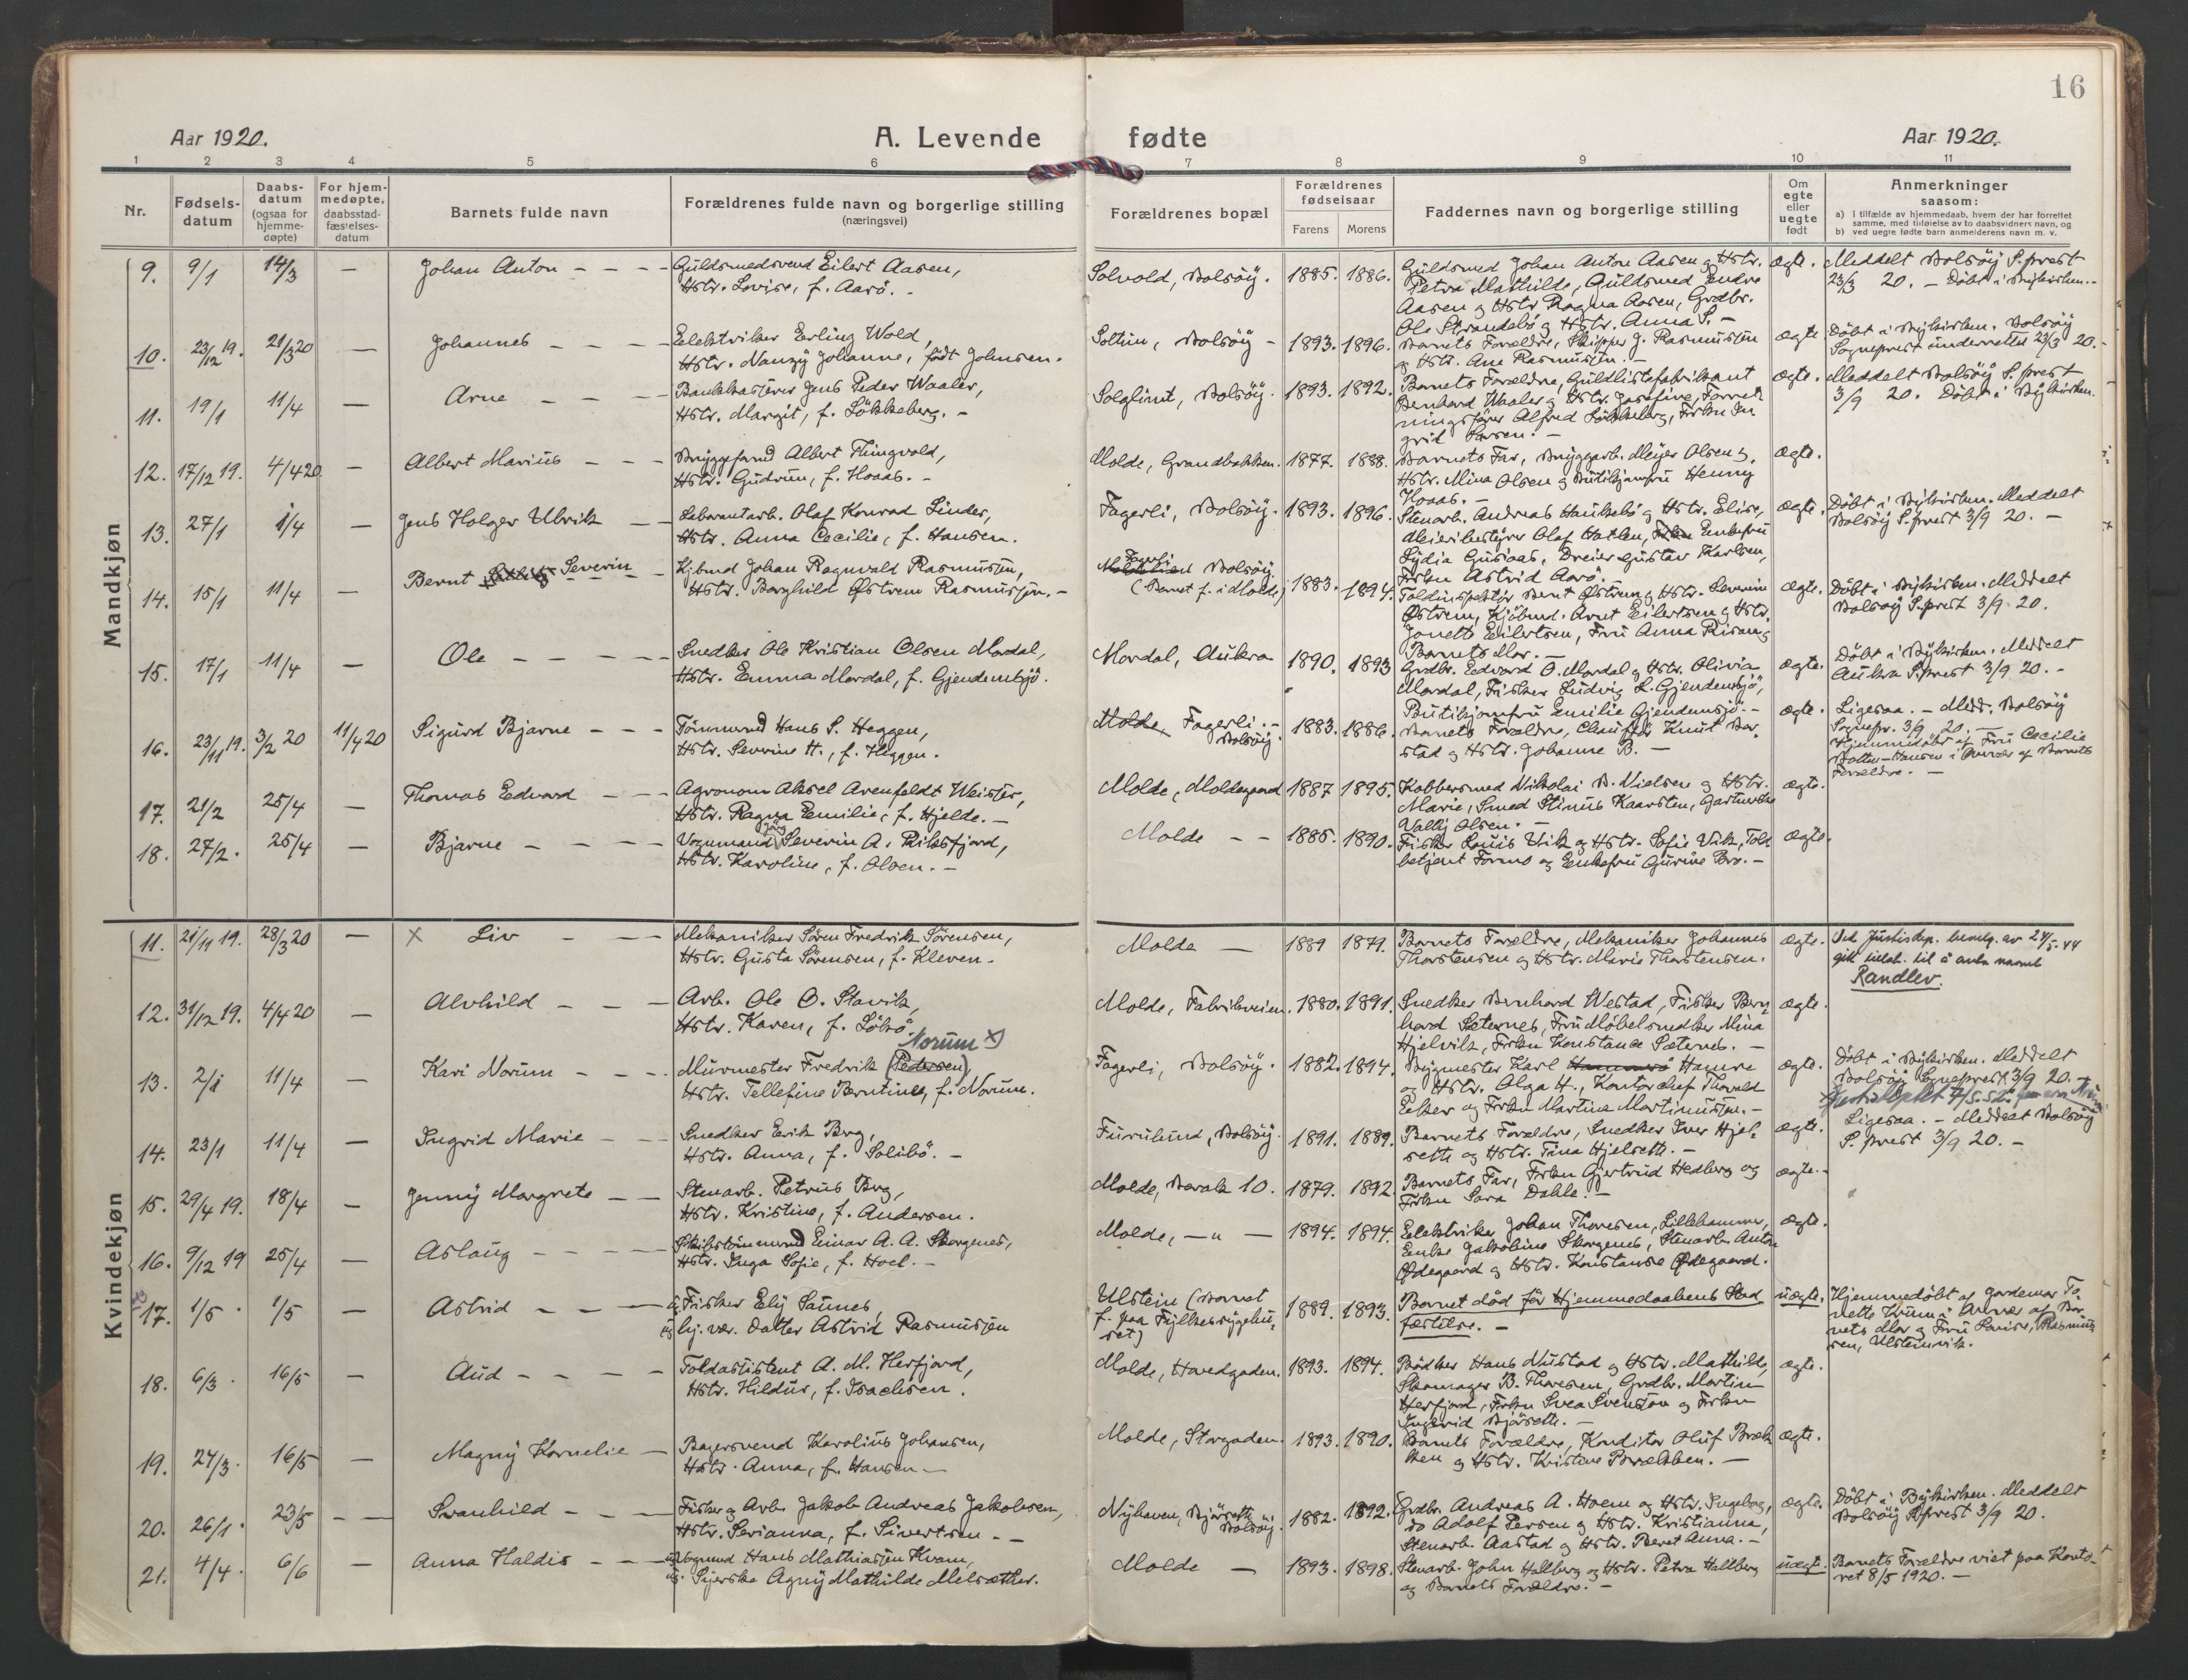 16
Aar 1920.
A. Levende fødte
Aar 1920.
1 2 3 4 5 6 7 8 9 10 11
Nr.
Fødsels-
datum
Daabs-
datum
(ogsaa for
hjemme-
døpte)
For hjem-
medøpte,
daabsstad-
fæstelses-
datum
Barnets fulde navn
Forældrenes fulde navn og borgerlige stilling
(næringsvei)
Forældrenes bopæl
Forældrenes
fødselsaar
Farens
Morens
Faddernes navn og borgerlige stilling
Om
egte
eller
uegte
født
Anmerkninger
saasom:
a) I tilfælde av hjemmedaab, hvem der har forrettet
samme, med tilføielse av to daabsvidners navn, og
b) ved uegte fødte barn anmelderens navn m. v.
Mandkjøn
9. 9/1 14/3 — Johan Anton - - -
Guldsmedsvend Eilert Aasen,
Hstr. Lovise, f. Aarö. -
Solvold, Bolsöy. 1885. 1886.
Guldsmed Johan Anton Aasen og Hstr.
Petra Mathilde, Guldsmed Endre
Aasen og Hstr Ragna Aasen, Grdbr.
Ole Strandebö og Hstr. Anna S. -
ægte.
Meddelt Bolsöy S.prest
23/3 20. - Döbt i Bykirken. -
10. 23/12 19. 21/3 20 — Johannes - - -
Elektriker Erling Wold,
Hstr. Nanzy Johanne, födt Johnsen.
Soltun, Bolsöy - 1893. 1896.
Barnets Forældre, Skipper J. Rasmussen
og Hstr. Ane Rasmussen. -
ægte
Döbt i Bykirken. Bolsöy
Sogneprest underrettet 23/3 20. -
11. 19/1 11/4 — Arne - - -
Bankkasserer Jens Peder Waaler,
Hstr. Margit, f. Lökkeberg. -
Solglimt, Bolsöy. 1893. 1892.
Barnets Forældre, Guldlistefabrikant
Bernhard Waaler og Hstr. Josefine, Forret-
ningsförer Alfred Lökkeberg, Frkn In-
grid Larsen. -
ægte.
Meddelt Bolsöy S. prest
3/9 20. Döbt i Bykirken.
12. 17/12 19. 4/4 20 — Albert Marius - - -
Bryggeformd Albert Thingvold,
Hstr. Gudrun, f. Hoaas. -
Molde, Grandbakken. 1877. 1888.
Barnets Far, Bryggearb. Meyer Olsen og
Hstr. Mina Olsen og Butikjomfru Henny
Hoaas. -
ægte.
13. 27/1 1/4 — Jens Holger Ulrik - -
Lebarantarb. Olaf Konrad Linder,
Hstr. Anna Cecilie, f. Hansen.
Fagerli, Bolsöy. 1893. 1896.
Stenarb. Andreas Haukebö og Hstr. Elise,
Meieribestyrer Olaf Hatlen, Enkefru
Lydia Gusiaas, Dreier Gustav Karlsen,
Frkn Astrid Aarö.
ægte.
Döbt i Bykirken. Meddelt
Bolsöy S.prest 3/9 20. -
14. 15/1 11/4 — Bernt Severin -
Kjbmd Johan Ragnvald Rasmussen,
Hstr. Borghild Østrem Rasmussen. -
Fagerli Bolsöy
(Barnet f. i Molde) 1883. 1894.
Toldinspektör Bernt Østrem og Hstr. Severine
Østrem, Kjöbmd. Arnt Eilertsen og Hstr.
Jonette Eilertsen, Fru Anna Risan og
Barnets Mor. -
ægte.
Döbt i Bykirken. Meddelt
Bolsöy S.prest 3/9 20.
15. 17/1 11/4 — Ole - - - -
Snedker Ole Kristian Olsen Mordal,
Hstr. Emma Mordal, f. Gjendemsjö.
Mordal, Aukra 1890. 1893
Grdbr. Edvard O. Mordal og Hstr. Olivia
Mordal, Fisker Ludvig L. Gjendemsjö,
Butikjomfru Emilie Gjendemsjö. -
ægte.
Döbt i Bykirken. Meddelt
Aukra S.prest 3/9 20. -
16. 23/11 19. 3/2 20 11/4 20 Sigurd Bjarne - - -
Tömmermd Hans S. Heggen,
Hstr. Severine H., f. Heggen.
Molde, Fagerli. -
Bolsöy. 1883. 1886.
Barnets Forældre, Chaufför Knut Bar-
stad og Hstr. Johanne B. -
ægte.
Ligesaa. - Medd. Bolsöy
Sognepr. 3/9 20. -
Hjemmedöbt af Fru Cecilie
Botten-Hansen i Nærvær af Barnets
Forældre. -
17. 21/2 25/4 — Thomas Edvard - - -
Agronom Aksel Arenfeldt Weister,
Hstr. Ragna Emilie, f. Hjelde. -
Molde, Moldegaard 1887 1895.
Kobbersmed Nikolai B. Nielsen og Hstr.
Marie, Smed Stinus Kaarsten, Gartnerske
Vally Olsen. -
ægte.
18. 27/2. 25/4 — Bjarne - - - -
Vognmand Severin A. Riksfjord,
Hstr. Karoline, f. Olsen. -
Molde - - 1885. 1890.
Fisker Louis Vik og Hstr. Sofie Vik, Told
betjent Formo og Enkefru Gurine Bro. -
ægte.
Kvindekjøn
11. 21/11 19. 28/3 20 — × Liv - - -
Mekaniker Sören Fredrik Sörensen,
Hstr. Gusta Sörensen, f. Kleven.
Molde — 1889 1879.
Barnets Forældre, Mekaniker Johannes
Thorstensen og Hstr. Marie Thorstensen.
ægte.
Ved Justisdep. bevilg. av 24/5-44
git tillat. til å anta navnet
Randlev.
12. 31/12 19. 4/4 20 — Alvhild - - -
Arb. Ole O. Stavik,
Hstr. Karen, f. Löbö.
Molde, Fabrikveien. 1880. 1891.
Snedker Bernhard Westad, Fisker Bern-
hard Sæternes, Fru Möbelsnedker Mina
Hjelvik, Frkn Konstance Sæternes. -
ægte.
13. 2/1 11/4 — Kari Norum - - -
Norum ×)
Murmester Fredrik (Pedersen),
Hstr. Tellefine Berntine, f. Norum.
Fagerli, Bolsöy. 1882. 1894.
Bygmester Karl Hamre
og Hstr. Olga H., Kontorchef Thorvald
Eeker og Frkn Martine Martinussen. -
ægte.
Döbt i Bykirken. Meddelt
Bolsöy Sogneprest 3/9 20. -
14. 23/1 11/4 — Ingrid Marie - -
Snedker Erik Berg,
Hstr. Anna, f. Solibö. -
Furulund, Bolsöy. 1891. 1889.
Barnets Forældre, Snedker Iver Hjel-
sette og Hstr. Tina Hjelsette. -
ægte.
Ligesaa. - Meddelt Bolsöy
S. prest 3/9 20. -
15. 29/4 19. 18/4 — Jenny Margrete - -
Stenarb. Petrus Berg,
Hstr. Kristine, f. Andersen.
Molde, Barak 10. 1879. 1892.
Barnets Far, Frkn Gjertrud Hedberg og
Frkn Sara Dahle. -
ægte. -
16. 9/12 19 25/4 — Aslaug - - - -
Skibstömmermd Einar A. A. Skorgenes,
Hstr. Inga Sofie, f. Hoel. -
Molde, —„— 1894. 1894.
Elektriker Johan Thoresen, Lillehammer,
Enke Jakobine Skorgenes, Stenarb. Anton
Ødegaard og Hstr. Konstanse Ødegaard.
ægte.
17. 1/5. 1/5 — Astrid - - -
Fisker Ely Saunes,
hj. vær. Datter Astrid Rasmussen
Ulstein (Barnet
f. paa Fylkessygehu-
set) 1889. 1893.
Barnet död för Hjemmedaabens Stad
fæstelse. -
uægte.
Hjemmedöbt af Jordemor To-
nette Krum i Nærvær af Bar-
nets Mor og Fru Lovise, Rasmus-
sen, Ulsteinvik.
18. 6/3. 16/5 — Aud - - - -
Toldassistent A. M. Herfjord,
Hstr. Hildur, f. Isachsen.
Molde, Hovedgaden. 1893. 1894.
Bödker Hans Mustad og Hstr. Mathilde,
Skomager B. Thoresen, Grdbr. Martin
Herfjord, Frkn Svea Svenson og Frkn
Ingerid Bjørsette. -
ægte.
19. 24/3. 16/5 — Magny Kornelie -
Bagersvend Karolius Johansen,
Hstr. Anna, f. Hansen -
Molde, Storgaden. 1893. 1890.
Barnets Forældre, Konditor Oluf Bræk
ken og Hstr. Kristine Brækken. -
ægte.
20. 26/1. 23/5 - - Svanhild - - -
Fisker og Arb. Jakob Andreas Jakobsen,
Hstr. Serianna, f. Sivertsen - -
Nyhaven, Bjørsette
Bolsöy. 1882. 1892.
Grdbr. Andreas A. Hoem og Hstr. Ingeborg,
do Adolf Persen og Hstr. Kristianna,
Stenarb. Aastad og Hstr. Beret Anna. -
ægte.
Döbt i Bykirken. Meddelt
Bolsöy S.prest 3/9 20.
21. 4/4. 6/6 — Anna Haldis - - -
Vognmd Hans Mathiassen Kvam,
ug. Syerske Agny Mathilde Melsæther.
Molde — 1893. 1898.
Stenarb. John Hallberg og Hstr. Petra Hallberg
og Barnets Forældre. -
uægt.
Barnets Forældre viet paa Konto-
ret 8/5 1920. -